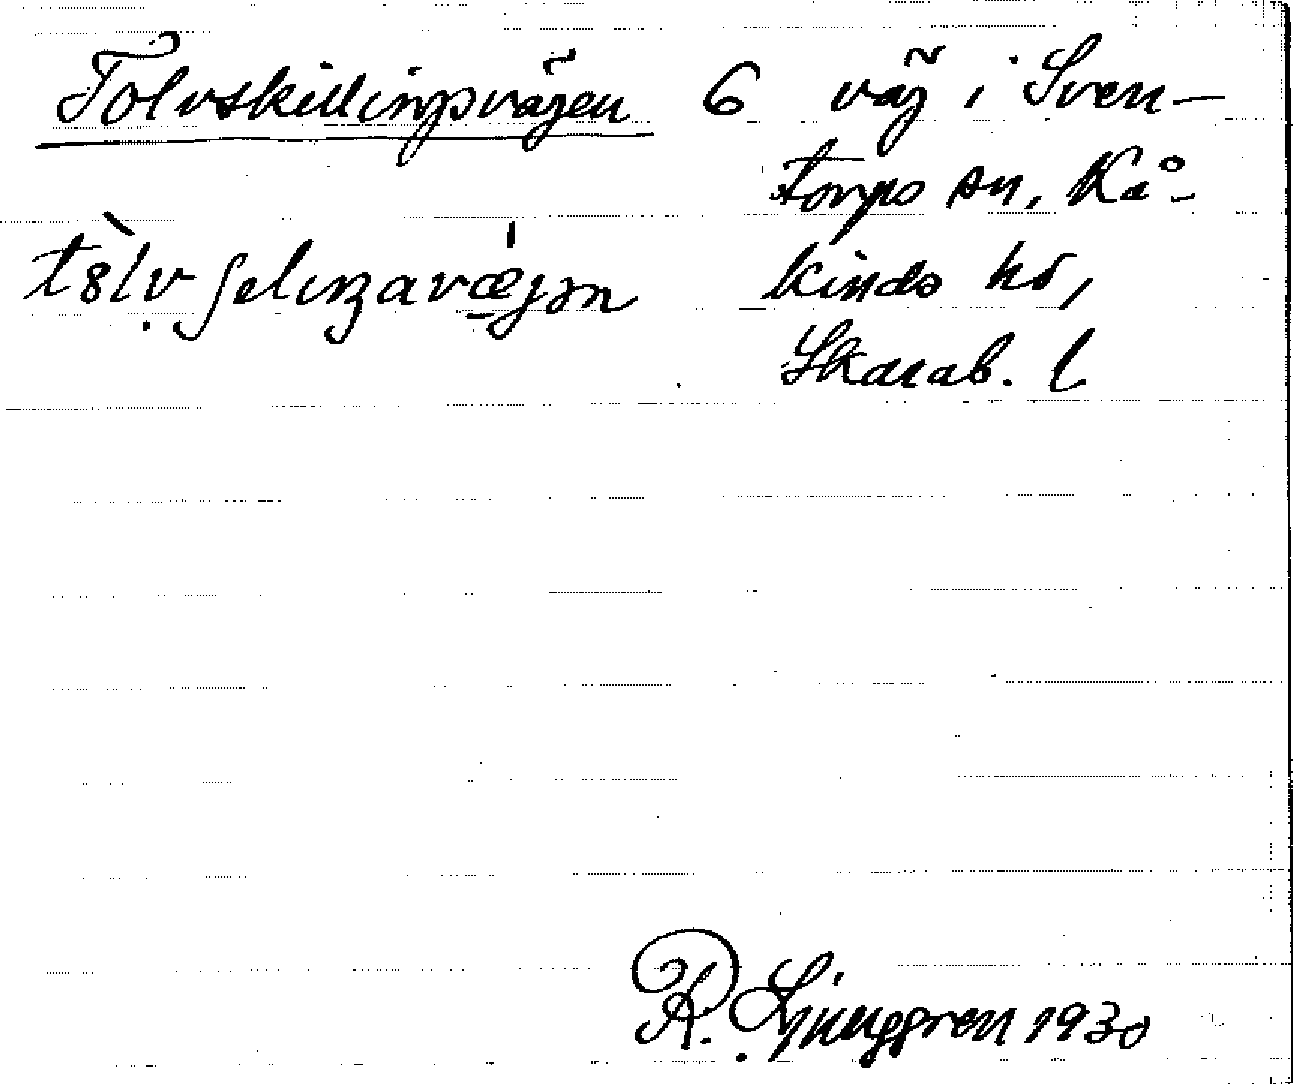 Tolvskillingsvägen 6 väg i Sven-
torps sn, Kå-
kinds hd,
Skarab. l
R. Ljunggren 1930